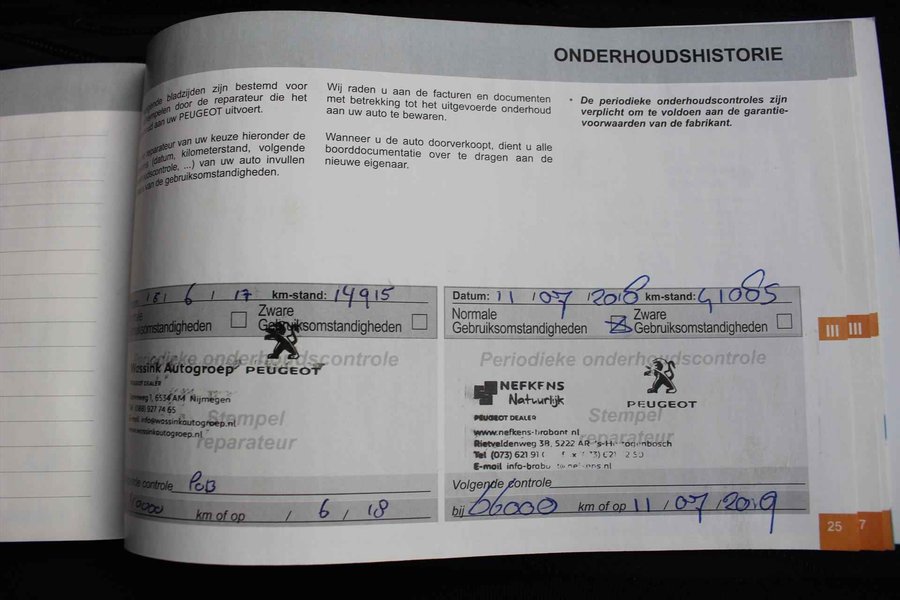 ONDERHOUDSHISTORIE
bladzijden zijn bestemd voor
door de reparateur die het
aan uw PEUGEOT uitvoert.
van uw keuze hieronder de
(datum, kilometerstand, volgende
...) van uw auto invullen
de gebruiksomstandigheden.
Wij raden u aan de facturen en documenten
met betrekking tot het uitgevoerde onderhoud
aan uw auto te bewaren.
Wanneer u de auto doorverkoopt, dient u alle
boorddocumentatie over te dragen aan de
nieuwe eigenaar.
* De periodieke onderhoudscontroles zijn
verplicht om te voldoen aan de garantie-
voorwaarden van de fabrikant.
6 / 17 km-stand: 14915
Zware
Gebruiksomstandigheden
Periodieke onderhoudscontrole
Wassink Autogroep PEUGEOT
PEUGEOT DEALER
6534 AM Nijmegen
927 74 65
info@wassinkautogroep.nl
www.wassinkautogroep.nl
Stempel
reparateur
controle PoB
km of op / 6 / 18
Datum: 11 / 07 / 2018 km-stand: 41085
Normale
Gebruiksomstandigheden
Zware
Gebruiksomstandigheden
Periodieke onderhoudscontrole
NEFKENS
Natuurlijk
PEUGEOT
PEUGEOT DEALER
Stempel
reparateur
www.nefkens-brabant.nl
Rietveldenweg 38, 5222 AR 's-Hertogenbosch
Tel (073) 621 91
E-mail
Volgende controle
bij 66000 km of op 11 / 07 / 2019
III III
25 7